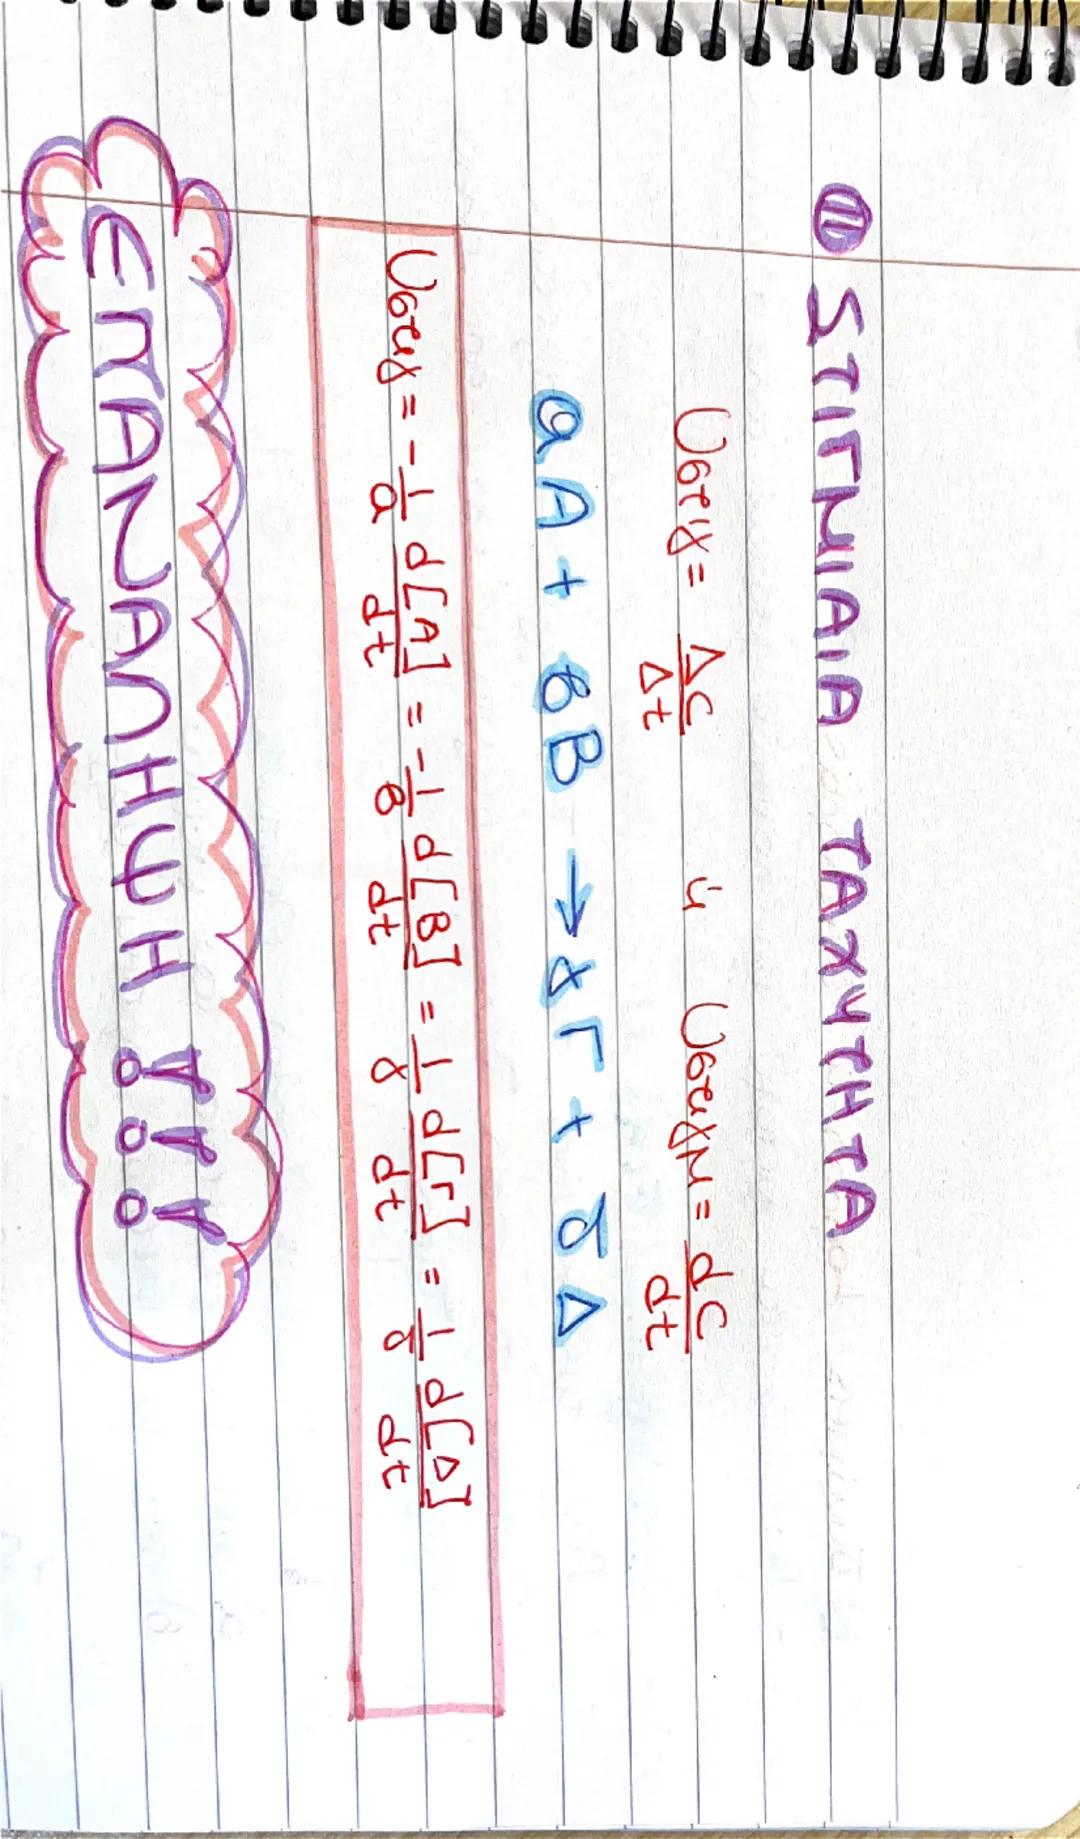 ⑪ ΣΤΙΓΜΙΑΙΑ ΤΑΧΥΤΗΤΑ
Uστιγ = ΔC/Δt ή Uστιγμ = dC/dt
αA + βB → γΓ + δΔ
Uστιγ = - 1/α d[A]/dt = - 1/β d[B]/dt = 1/γ d[Γ]/dt = 1/δ d[Δ]/dt
ΕΠΑΝΑΛΗΨΗ !!!